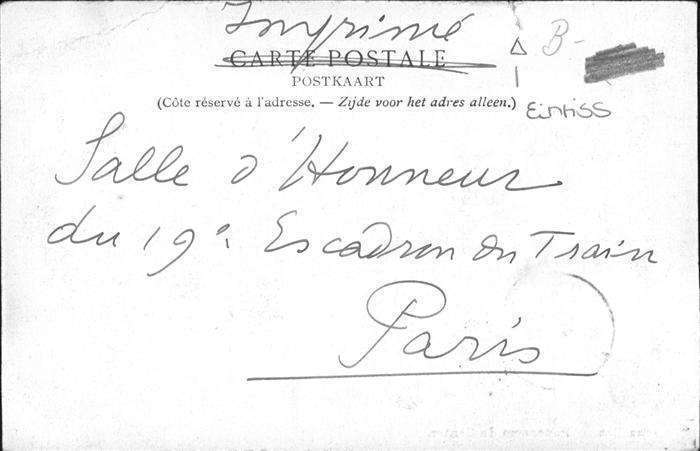 Imprimé
CARTE POSTALE
POSTKAART
(Côte réservé à l'adresse. — Zijde voor het adres alleen.)
B-
Einriss
Salle d'Honneur
du 19e. Escadron du Train
Paris